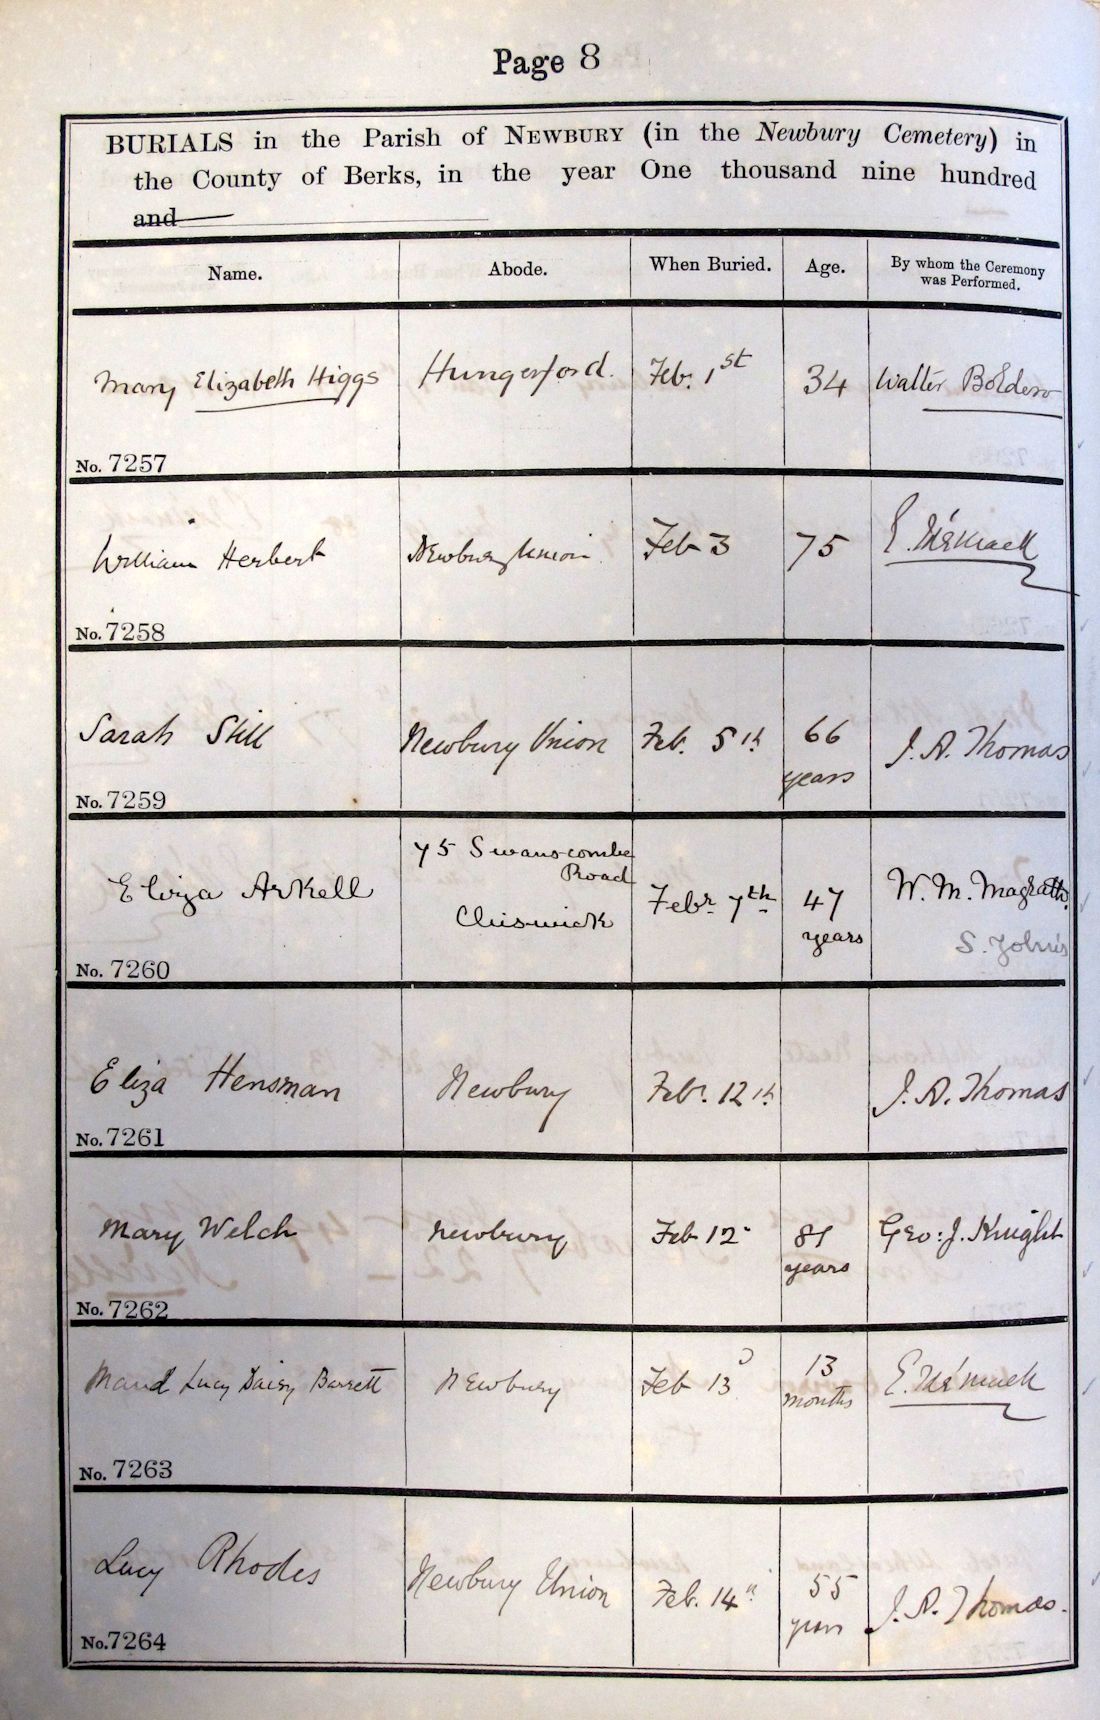 Page 8
BURIALS in the Parish of NEWBURY (in the Newbury Cemetery) in
the County of Berks, in the year One thousand nine hundred
and
Name.
Abode.
When Buried.
Age.
By whom the Ceremony
was Performed.
Mary Elizabeth Higgs
Hungerford.
Feb. 1st
34
Walter Boldero
No. 7257
William Herbert
Newbury Union
Feb 3
75
E.
No. 7258
Sarah Still
Newbury Union
Feb. 5th
66
years
J. A. Thomas
No. 7259
Eliza Arkell
75 Swanscombe
Road
Chiswick
Febr. 7th
47
years
W. M. Magrath.
S. John's
No. 7260
Eliza Hensman
Newbury
Feb. 12th
J. A. Thomas
No. 7261
Mary Welch
Newbury
Feb 12
81
years
Geo: J. Knight
No. 7262
Maud Lucy Daisy Barrett
Newbury
Feb 13
13
months
E.
No. 7263
Lucy Rhodes
Newbury Union
Feb. 14"
55
years
J. A. Thomas.
No. 7264